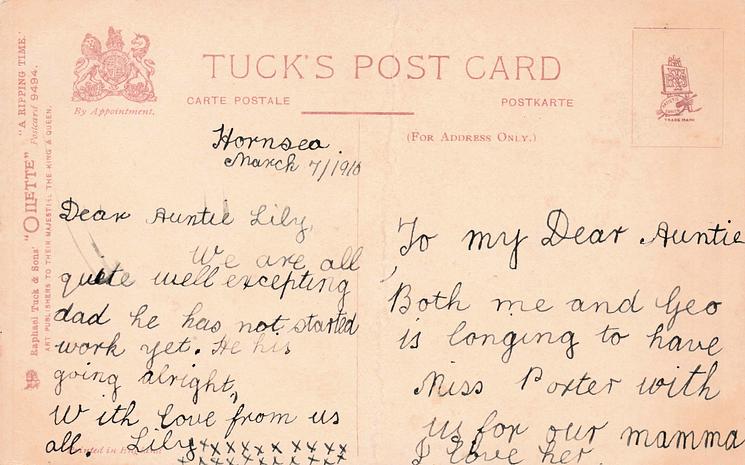 TUCK'S POST CARD
CARTE POSTALE
POSTKARTE
By Appointment.
(FOR ADDRESS ONLY.)
TRADE MARK
"A RIPPING TIME."
Postcard 9494.
Raphael Tuck & Sons' "OILETTE"
ART PUBLISHERS TO THEIR MAJESTIES THE KING & QUEEN.
Hornsea.
March 7/1910
Dear Auntie Lily,
We are all
quite well excepting
dad he has not started
work yet. He his
going alright,
With love from us
all. Lily xxxxxxxxxx
xxxxxxxxxx
Printed in England
To my Dear Auntie
Both me and Geo
is longing to have
Miss Porter with
us for our mamma
I love her.